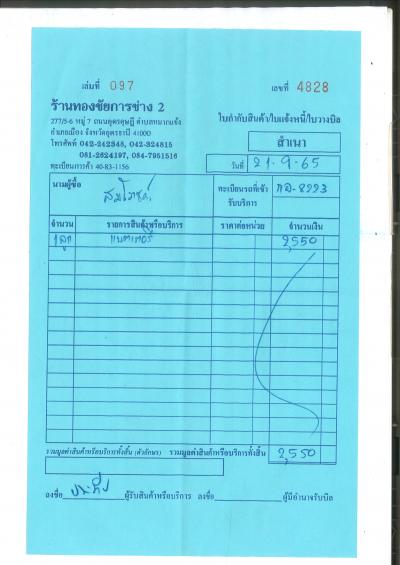 เล่มที่ 097 เลขที่ 4828
ร้านทองชัยการช่าง 2
277/5-6 หมู่ 7 ถนนอุดรดุษฎี ตำบลหมากแข้ง
อำเภอเมือง จังหวัดอุดรธานี 41000
โทรศัพท์ 042-242348, 042-324815
081-2624197, 084-7951516
ทะเบียนการค้า 40-83-1156
ใบกำกับสินค้า/ใบแจ้งหนี้/ใบวางบิล
สำเนา
วันที่ 21-9-65
นามผู้ซื้อ
ทะเบียนรถที่เข้ารับบริการ
จำนวน รายการสินค้าหรือบริการ ราคาต่อหน่วย จำนวนเงิน
1 ลูก แบตเตอรี่ 2,550
รวมมูลค่าสินค้าหรือบริการทั้งสิ้น (ตัวอักษร) รวมมูลค่าสินค้าหรือบริการทั้งสิ้น 2,550
ลงชื่อ ผู้รับสินค้าหรือบริการ ลงชื่อ ผู้มีอำนาจรับบิล